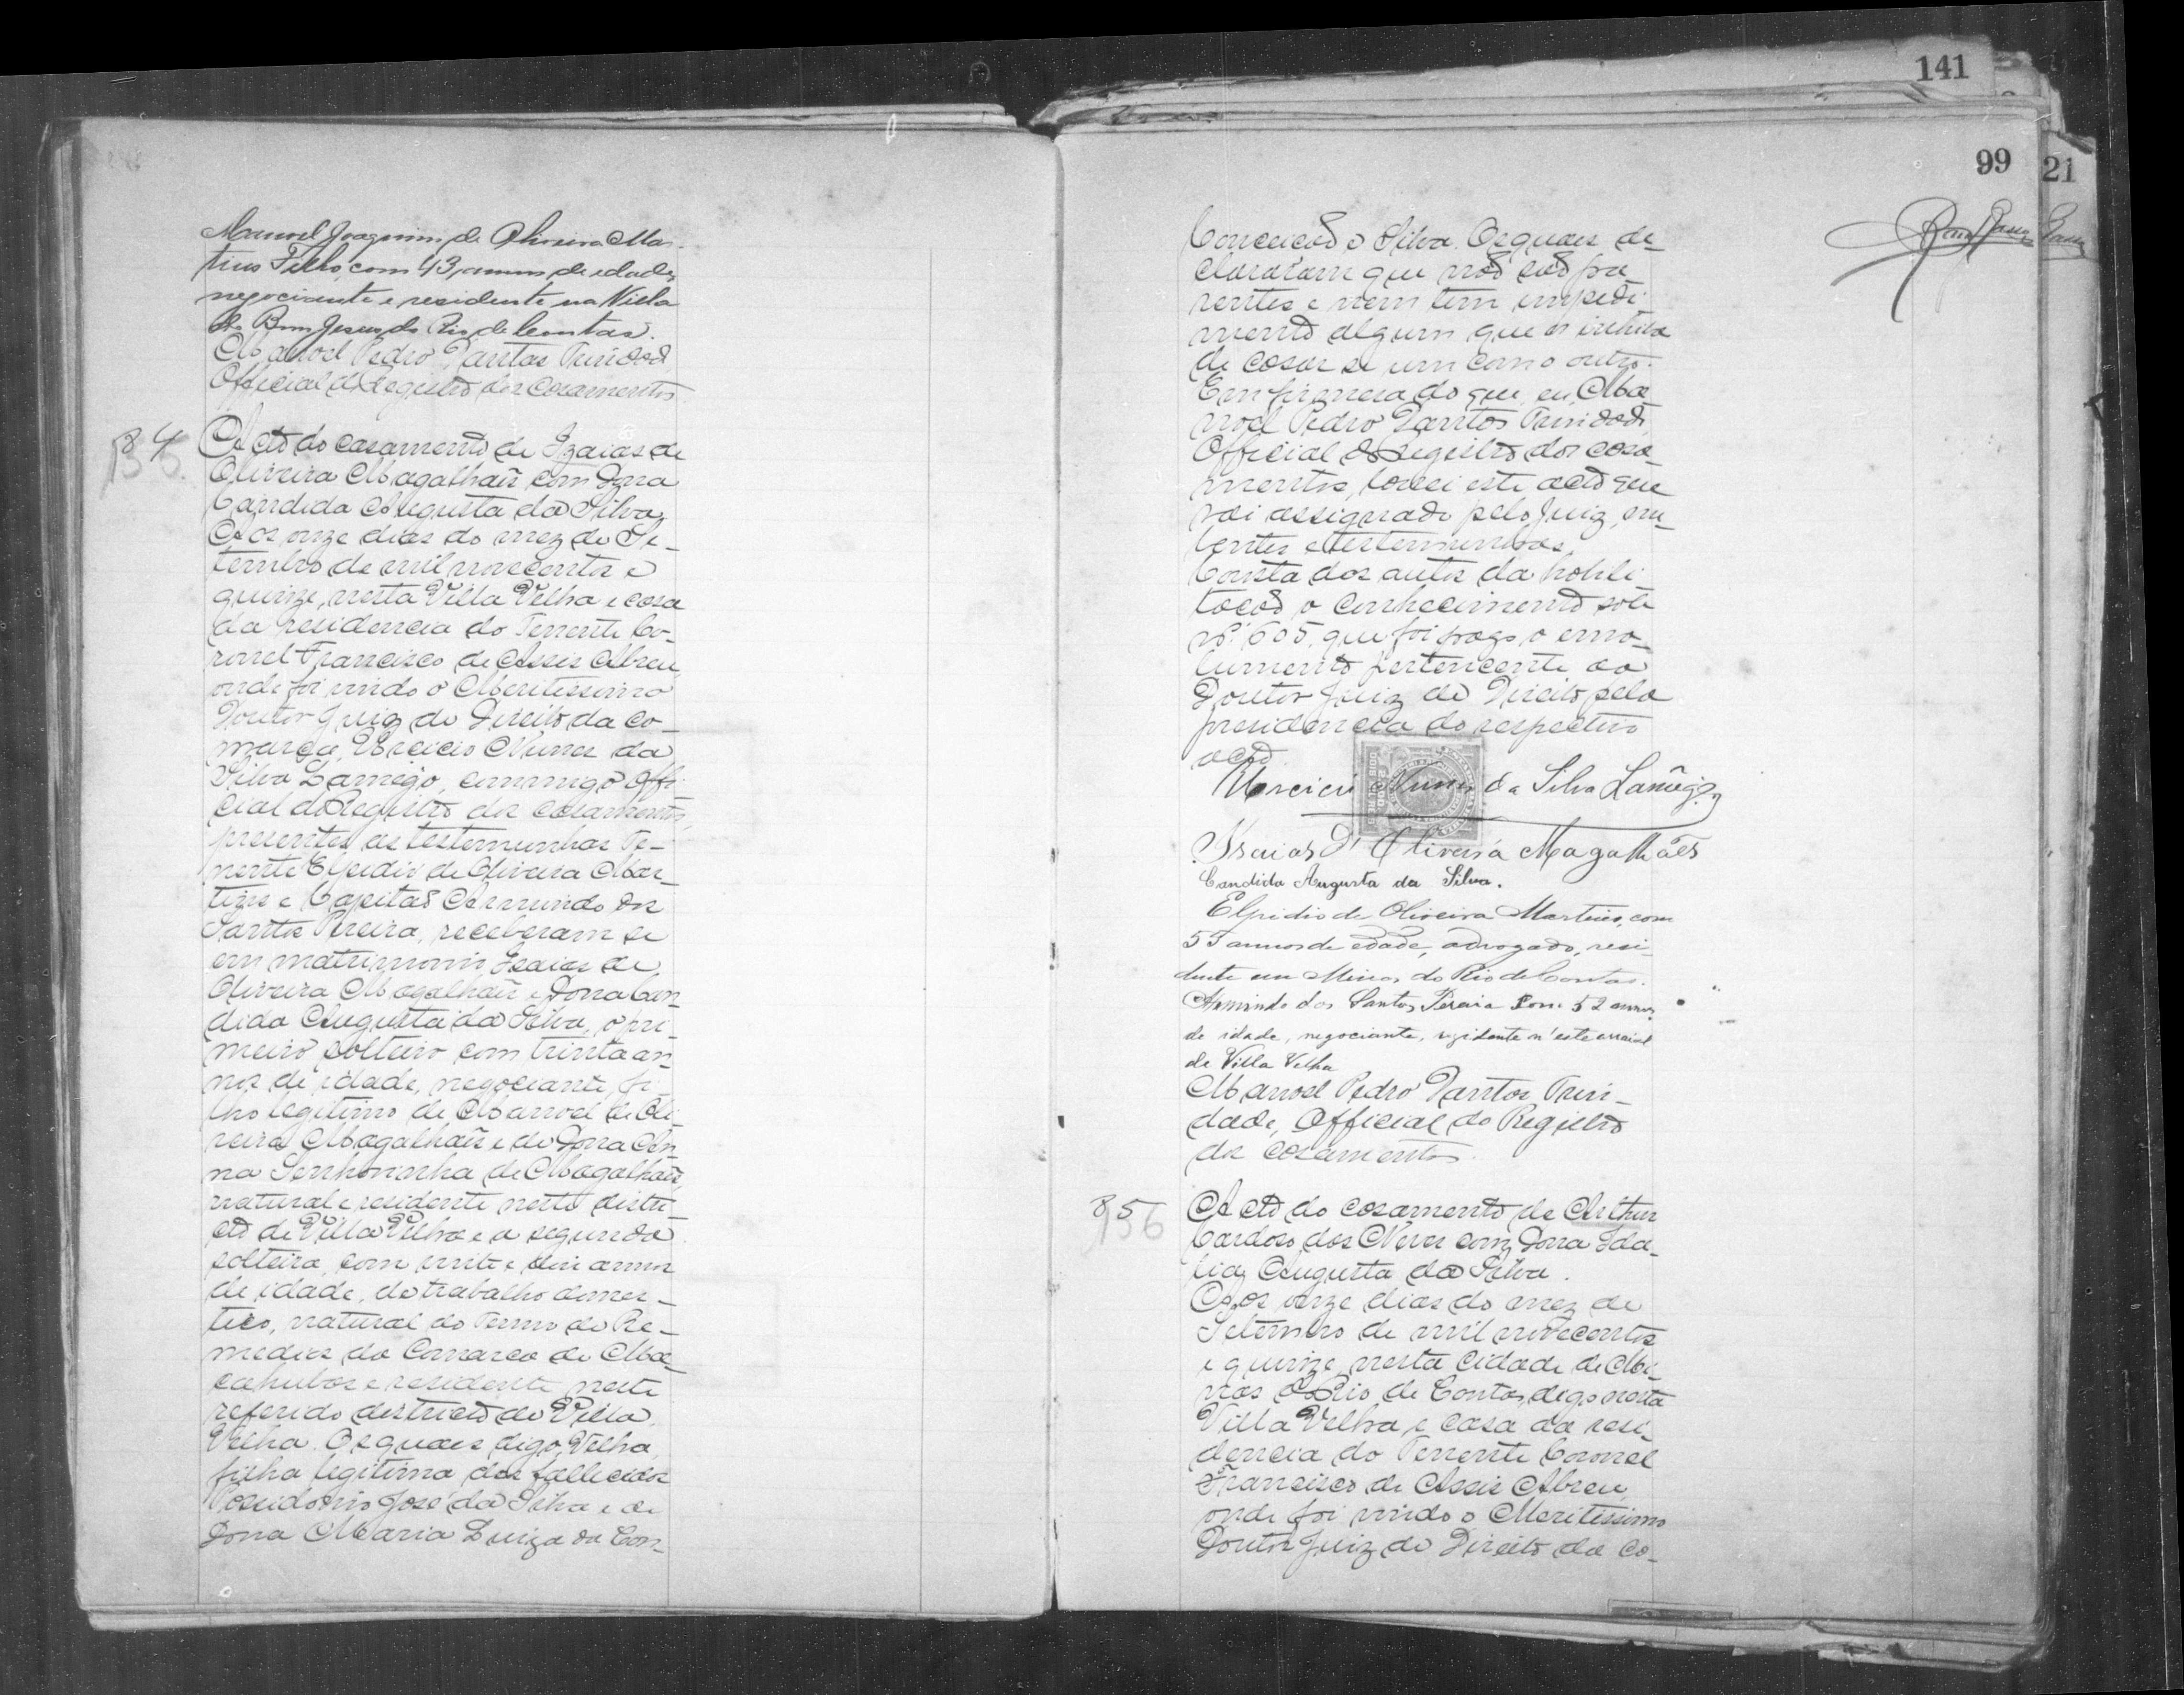 Manoel Joaquim de Oliveira Mar-
tins Filho, com 43 annos de edade,
negociante e residente na Villa
do Bom Jesus do Rio de Contas.
Manoel Pedro Dantas Trindade
Official do Registro dos Casamentos
84
Acto do casamento de Izaias de
Oliveira Magalhães com Dona
Candida Augusta da Silva
Aos onze dias do mez de Se-
tembro de mil novecentos e
quinze, nesta Villa Velha e casa
da residencia do Tenente Co-
ronel Francisco de Assis Abreu,
onde foi vindo o Meritissimo
Doutor Juiz de Direito da Co-
marca, Urcicio Nunes da
Silva Lamêgo, commigo Offi-
cial do Registro dos casamentos,
presentes as testemunhas Te-
nente Elpidio de Oliveira Mar-
tins e Capitaõ Armindo dos
Santos Pereira, receberam se
em matrimonio, Isaias de
Oliveira Magalhães e Dona Can-
dida Augusta da Silva, o pri-
meiro solteiro com trinta an-
nos de idade, negociante, fi-
lho legitimo de Manoel de Oli-
veira Magalhães e de Dona An-
na Senhorinha de Magalhães,
natural e residente neste distri-
cto de Villa Velha e a segunda
solteira, com vinte e annos
de idade, do trabalho domes-
tico, natural do Termo de Re-
medios da Comarca de Ma-
cahubas e residente neste
referido districto de Villa
Velha. Os quaes digo, Velha,
filha legitima dos fallecidos
Possidonio José da Silva e de
Dona Maria Luiza da Con-
141
99
21
Conceicaõ e Silva. Os quaes de-
clararam que naõ saõ pa-
rentes e nem tem impedi-
mento algum que os inhiba
de casar se um com o outro.
Em firmeza do que, eu, Ma-
noel Pedro Dantas Trindade,
Official do Registro dos casa-
mentos, lavrei este acto que
vai assignado pelo Juiz, nu-
bentes e testemunhas.
Consta dos autos da habili-
tacaõ o conhecimento sob
nº. 605, que foi pago o emo-
lumento pertencente ao
Doutor Juiz de Direito pela
presidencia do respectivo
acto.
Urcicio Nunes da Silva Lamêgo
Isaias d'Oliveira Magalhães
Candida Augusta da Silva.
Elpidio de Oliveira Martins, com
53 annos de edade, advogado, resi-
dente em Minas do Rio de Contas.
Armindo dos Santos Pereira com 52 annos
de idade, negociante, rezidente n'este arraial
de Villa Velha
Manoel Pedro Dantas Trin-
dade, Official do Registro
dos casamentos.
85
156
Acto do casamento de Arthur
Cardoso dos Neves com Dona Ida-
lia Augusta da Silva.
Aos onze dias do mez de
Setembro de mil novecentos
e quinze, nesta Cidade de Mi-
nas do Rio de Contas, digo nesta
Villa Velha e casa da resi-
dencia do Tenente Coronel
Francisco de Assis Abreu,
onde foi vindo o Meritissimo
Doutor Juiz de Direito da Co-